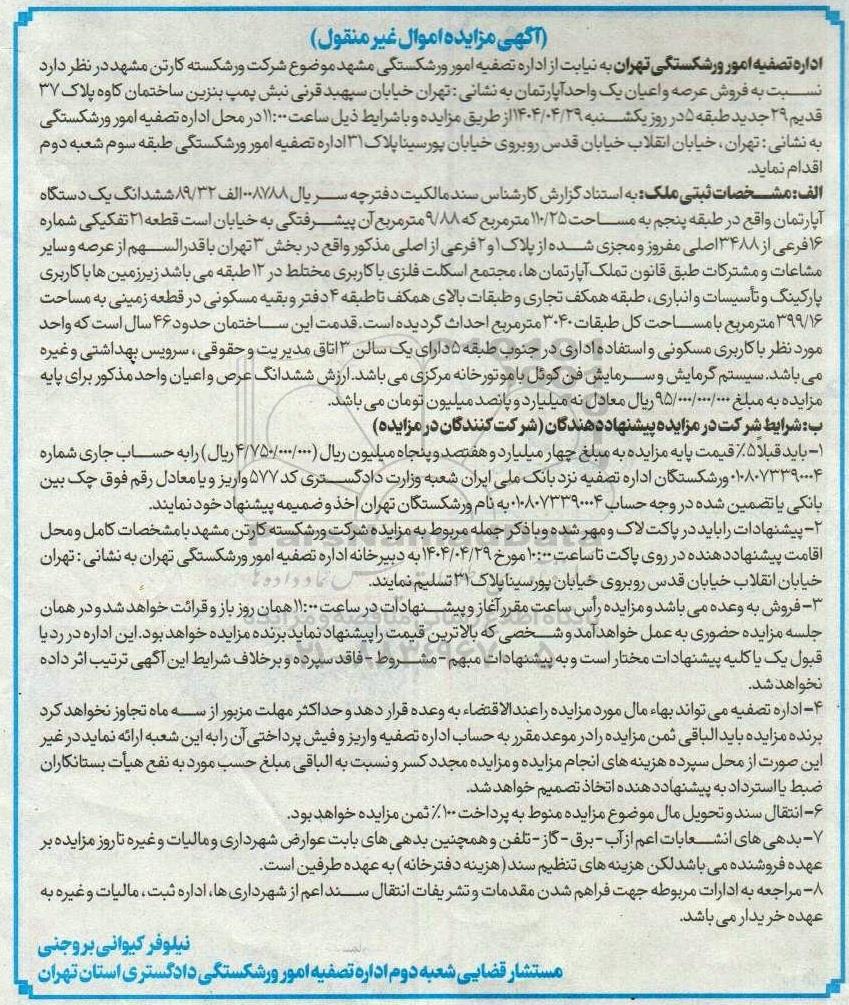 (آگهی مزایده اموال غیر منقول)
اداره تصفیه امور ورشکستگی تهران به نیابت از اداره تصفیه امور ورشکستگی مشهد موضوع شرکت ورشکسته کارتن مشهد در نظر دارد
نسبت به فروش عرصه و اعیان یک واحد آپارتمان به نشانی : تهران خیابان سپهبد قرنی نبش پمپ بنزین ساختمان کاوه پلاک ۳۷
قدیم ۲۹ جدید طبقه ۵ در روز یکشنبه ۱۴۰۴/۰۴/۲۹ از طریق مزایده و با شرایط ذیل ساعت ۱۱:۰۰ در محل اداره تصفیه امور ورشکستگی
به نشانی : تهران ، خیابان انقلاب خیابان قدس روبروی خیابان پورسینا پلاک ۳۱ اداره تصفیه امور ورشکستگی طبقه سوم شعبه دوم
اقدام نماید.
الف: مشخصات ثبتی ملک: به استناد گزارش کارشناس سند مالکیت دفترچه سریال ۰۰۸۷۸۸ الف ۸۹/۳۲ ششدانگ یک دستگاه
آپارتمان واقع در طبقه پنجم به مساحت ۱۱۰/۲۵ مترمربع که ۹/۸۸ مترمربع آن پیشرفتگی به خیابان است قطعه ۲۱ تفکیکی شماره
۱۶ فرعی از ۳۴۸۸ اصلی مفروز و مجزی شده از پلاک ۱ و ۲ فرعی از اصلی مذکور واقع در بخش ۳ تهران با قدرالسهم از عرصه و سایر
مشاعات و مشترکات طبق قانون تملک آپارتمان ها، مجتمع اسکلت فلزی با کاربری مختلط در ۱۲ طبقه می باشد زیرزمین ها با کاربری
پارکینگ و تأسیسات و انباری ، طبقه همکف تجاری و طبقات بالای همکف تا طبقه ۴ دفتر و بقیه مسکونی در قطعه زمینی به مساحت
۳۹۹/۱۶ مترمربع با مساحت کل طبقات ۳۰۴۰ مترمربع احداث گردیده است. قدمت این ساختمان حدود ۴۶ سال است که واحد
مورد نظر با کاربری مسکونی و استفاده اداری در جنوب طبقه ۵ دارای یک سالن ۳ اتاق مدیریت و حقوقی ، سرویس بهداشتی و غیره
می باشد. سیستم گرمایش و سرمایش فن کوئل با موتورخانه مرکزی می باشد. ارزش ششدانگ عرص و اعیان واحد مذکور برای پایه
مزایده به مبلغ ۹۵/۰۰۰/۰۰۰/۰۰۰ ریال معادل نه میلیارد و پانصد میلیون تومان می باشد.
ب: شرایط شرکت در مزایده پیشنهاد دهندگان (شرکت کنندگان در مزایده)
۱- باید قبلاً ۵٪ قیمت پایه مزایده به مبلغ چهار میلیارد و هفتصد و پنجاه میلیون ریال (۴/۷۵۰/۰۰۰/۰۰۰ ریال) را به حساب جاری شماره
۰۱۰۸۰۷۳۳۹۰۰۰۴ ورشکستگان اداره تصفیه نزد بانک ملی ایران شعبه وزارت دادگستری کد ۵۷۷ واریز و یا معادل رقم فوق چک بین
بانکی یا تضمین شده در وجه حساب ۰۱۰۸۰۷۳۳۹۰۰۰۴ به نام ورشکستگان تهران اخذ و ضمیمه پیشنهاد خود نمایند.
۲- پیشنهادات را باید در پاکت لاک و مهر شده و با ذکر جمله مربوط به مزایده شرکت ورشکسته کارتن مشهد با مشخصات کامل و محل
اقامت پیشنهاد دهنده در روی پاکت تا ساعت ۱۰:۰۰ مورخ ۱۴۰۴/۰۴/۲۹ به دبیرخانه اداره تصفیه امور ورشکستگی تهران به نشانی : تهران
خیابان انقلاب خیابان قدس روبروی خیابان پورسینا پلاک ۳۱ تسلیم نمایند.
۳- فروش به وعده می باشد و مزایده رأس ساعت مقرر آغاز و پیشنهادات در ساعت ۱۱:۰۰ همان روز باز و قرائت خواهد شد و در همان
جلسه مزایده حضوری به عمل خواهد آمد و شخصی که بالاترین قیمت را پیشنهاد نماید برنده مزایده خواهد بود. این اداره در رد یا
قبول یک یا کلیه پیشنهادات مختار است و به پیشنهادات مبهم - مشروط - فاقد سپرده و برخلاف شرایط این آگهی ترتیب اثر داده
نخواهد شد.
۴- اداره تصفیه می تواند بهاء مال مورد مزایده را عندالاقتضاء به وعده قرار دهد و حداکثر مهلت مزبور از سه ماه تجاوز نخواهد کرد
برنده مزایده باید الباقی ثمن مزایده را در موعد مقرر به حساب اداره تصفیه واریز و فیش پرداختی آن را به این شعبه ارائه نماید در غیر
این صورت از محل سپرده هزینه های انجام مزایده و مزایده مجدد کسر و نسبت به الباقی مبلغ حسب مورد به نفع هیأت بستانکاران
ضبط یا استرداد به پیشنهاد دهنده اتخاذ تصمیم خواهد شد.
۶- انتقال سند و تحویل مال موضوع مزایده منوط به پرداخت ۱۰۰٪ ثمن مزایده خواهد بود.
۷- بدهی های انشعابات اعم از آب - برق - گاز - تلفن و همچنین بدهی های بابت عوارض شهرداری و مالیات و غیره تا روز مزایده بر
عهده فروشنده می باشد لکن هزینه های تنظیم سند (هزینه دفترخانه) به عهده طرفین است.
۸- مراجعه به ادارات مربوطه جهت فراهم شدن مقدمات و تشریفات انتقال سند اعم از شهرداری ها، اداره ثبت ، مالیات و غیره به
عهده خریدار می باشد.
نیلوفر کیوانی بروجنی
مستشار قضایی شعبه دوم اداره تصفیه امور ورشکستگی دادگستری استان تهران